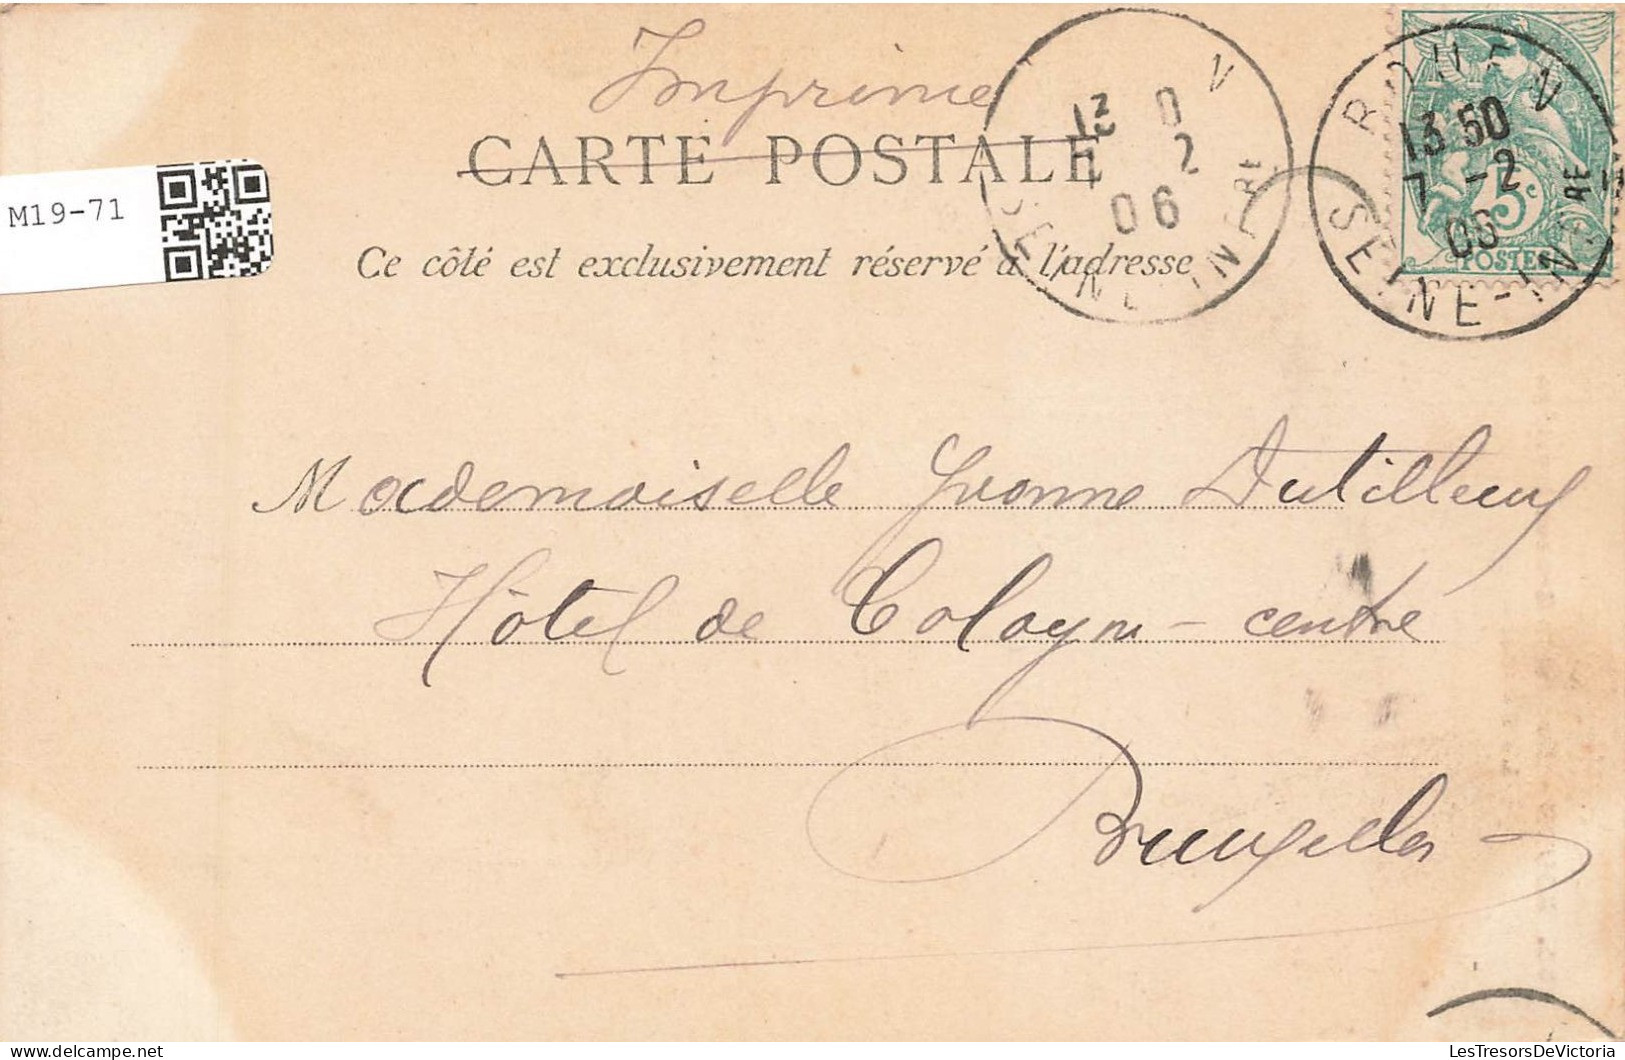 Imprimé
CARTE POSTALE
Ce côté est exclusivement réservé à l'adresse
M19-71
13 0
7 2
06
SEINE-INFRE
ROUEN
13 50
7 -2
06
SEINE-INFRE
5c
POSTES
Mademoiselle Yvonne Dutilleux
Hôtel de Cologne - centre
Bruxelles
LesTresorsDeVictoria